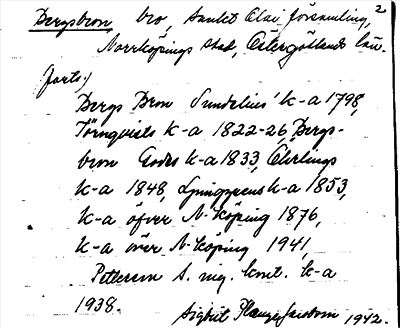 Bergsbron bro, Sankt Olai församling, 2
Norrköpings stad, Östergötlands län.
forts.)
Bergs Bron Sundelius' k-a 1798,
Törnqvists k-a 1822-26, Bergs-
bron Godes k-a 1833, Ehrlings
k-a 1848, Ljunggrens k-a 1853,
k-a öfver N-köping 1876,
k-a över N-köping 1941,
Petterson S. k-a
1938.
Sigurd 1942.